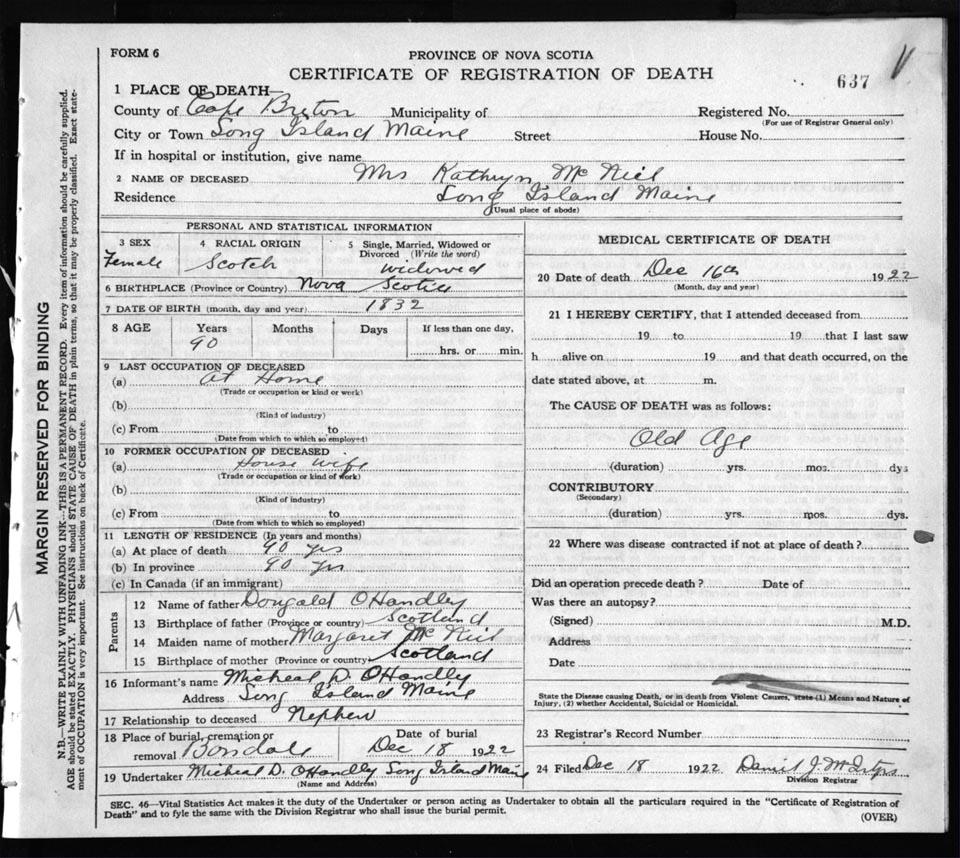 FORM 6
PROVINCE OF NOVA SCOTIA
CERTIFICATE OF REGISTRATION OF DEATH
637
1 PLACE OF DEATH—
County of Cape Breton Municipality of Registered No.
(For use of Registrar General only)
City or Town Long Island Maine Street House No.
If in hospital or institution, give name
2 NAME OF DECEASED Mrs Kathryn McNiel
Residence Long Island Maine
(Usual place of abode)
PERSONAL AND STATISTICAL INFORMATION
3 SEX Female
4 RACIAL ORIGIN Scotch
5 Single, Married, Widowed or Divorced (Write the word) widowed
6 BIRTHPLACE (Province or Country) Nova Scotia
7 DATE OF BIRTH (month, day and year) 1832
8 AGE Years Months Days If less than one day,
90 hrs. or min.
9 LAST OCCUPATION OF DECEASED
(a) At Home
(Trade or occupation or kind or work)
(b)
(Kind of industry)
(c) From to
(Date from which to which so employed)
10 FORMER OCCUPATION OF DECEASED
(a) House wife
(Trade or occupation or kind of work)
(b)
(Kind of industry)
(c) From to
(Date from which to which so employed)
11 LENGTH OF RESIDENCE (In years and months)
(a) At place of death 90 yrs
(b) In province 90 yrs
(c) In Canada (if an immigrant)
Parents
12 Name of father Dougald OHandley
13 Birthplace of father (Province or country) Scotland
14 Maiden name of mother Margaret McNiel
15 Birthplace of mother (Province or country) Scotland
16 Informant's name Micheal D. OHandly
Address Long Island Maine
17 Relationship to deceased Nephew
18 Place of burial, cremation or Date of burial
removal Bonsdale Dec 18 1922
19 Undertaker Micheal D. OHandly Long Island Maine
(Name and Address)
MEDICAL CERTIFICATE OF DEATH
20 Date of death Dec 16th 1922
(Month, day and year)
21 I HEREBY CERTIFY, that I attended deceased from
19 to 19 that I last saw
h alive on 19 and that death occurred, on the
date stated above, at m.
The CAUSE OF DEATH was as follows:
Old Age
(duration) yrs. mos. dys
CONTRIBUTORY
(Secondary)
(duration) yrs. mos. dys.
22 Where was disease contracted if not at place of death?
Did an operation precede death? Date of
Was there an autopsy?
(Signed) M.D.
Address
Date
State the Disease causing Death, or in death from Violent Causes, state (1) Means and Nature of
Injury, (2) whether Accidental, Suicidal or Homicidal.
23 Registrar's Record Number
24 Filed Dec 18 1922 Daniel J.
Division Registrar
SEC. 46—Vital Statistics Act makes it the duty of the Undertaker or person acting as Undertaker to obtain all the particulars required in the "Certificate of Registration of
Death" and to fyle the same with the Division Registrar who shall issue the burial permit.
(OVER)
MARGIN RESERVED FOR BINDING
N.B.—WRITE PLAINLY WITH UNFADING INK—THIS IS A PERMANENT RECORD. Every item of information should be carefully supplied.
AGE should be stated EXACTLY. PHYSICIANS should STATE CAUSE OF DEATH in plain terms, so that it may be properly classified. Exact state-
ment of OCCUPATION is very important. See instructions on back of Certificate.